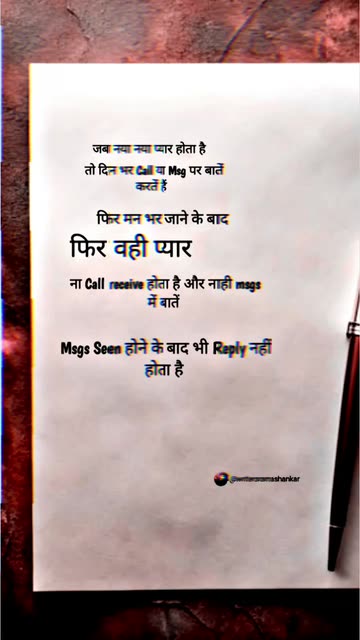 जब नया नया प्यार होता है
तो दिन भर Call या Msg पर बातें
करतें हैं
फिर मन भर जाने के बाद
फिर वही प्यार
ना Call receive होता है और नाही msgs
में बातें
Msgs Seen होने के बाद भी Reply नहीं
होता है